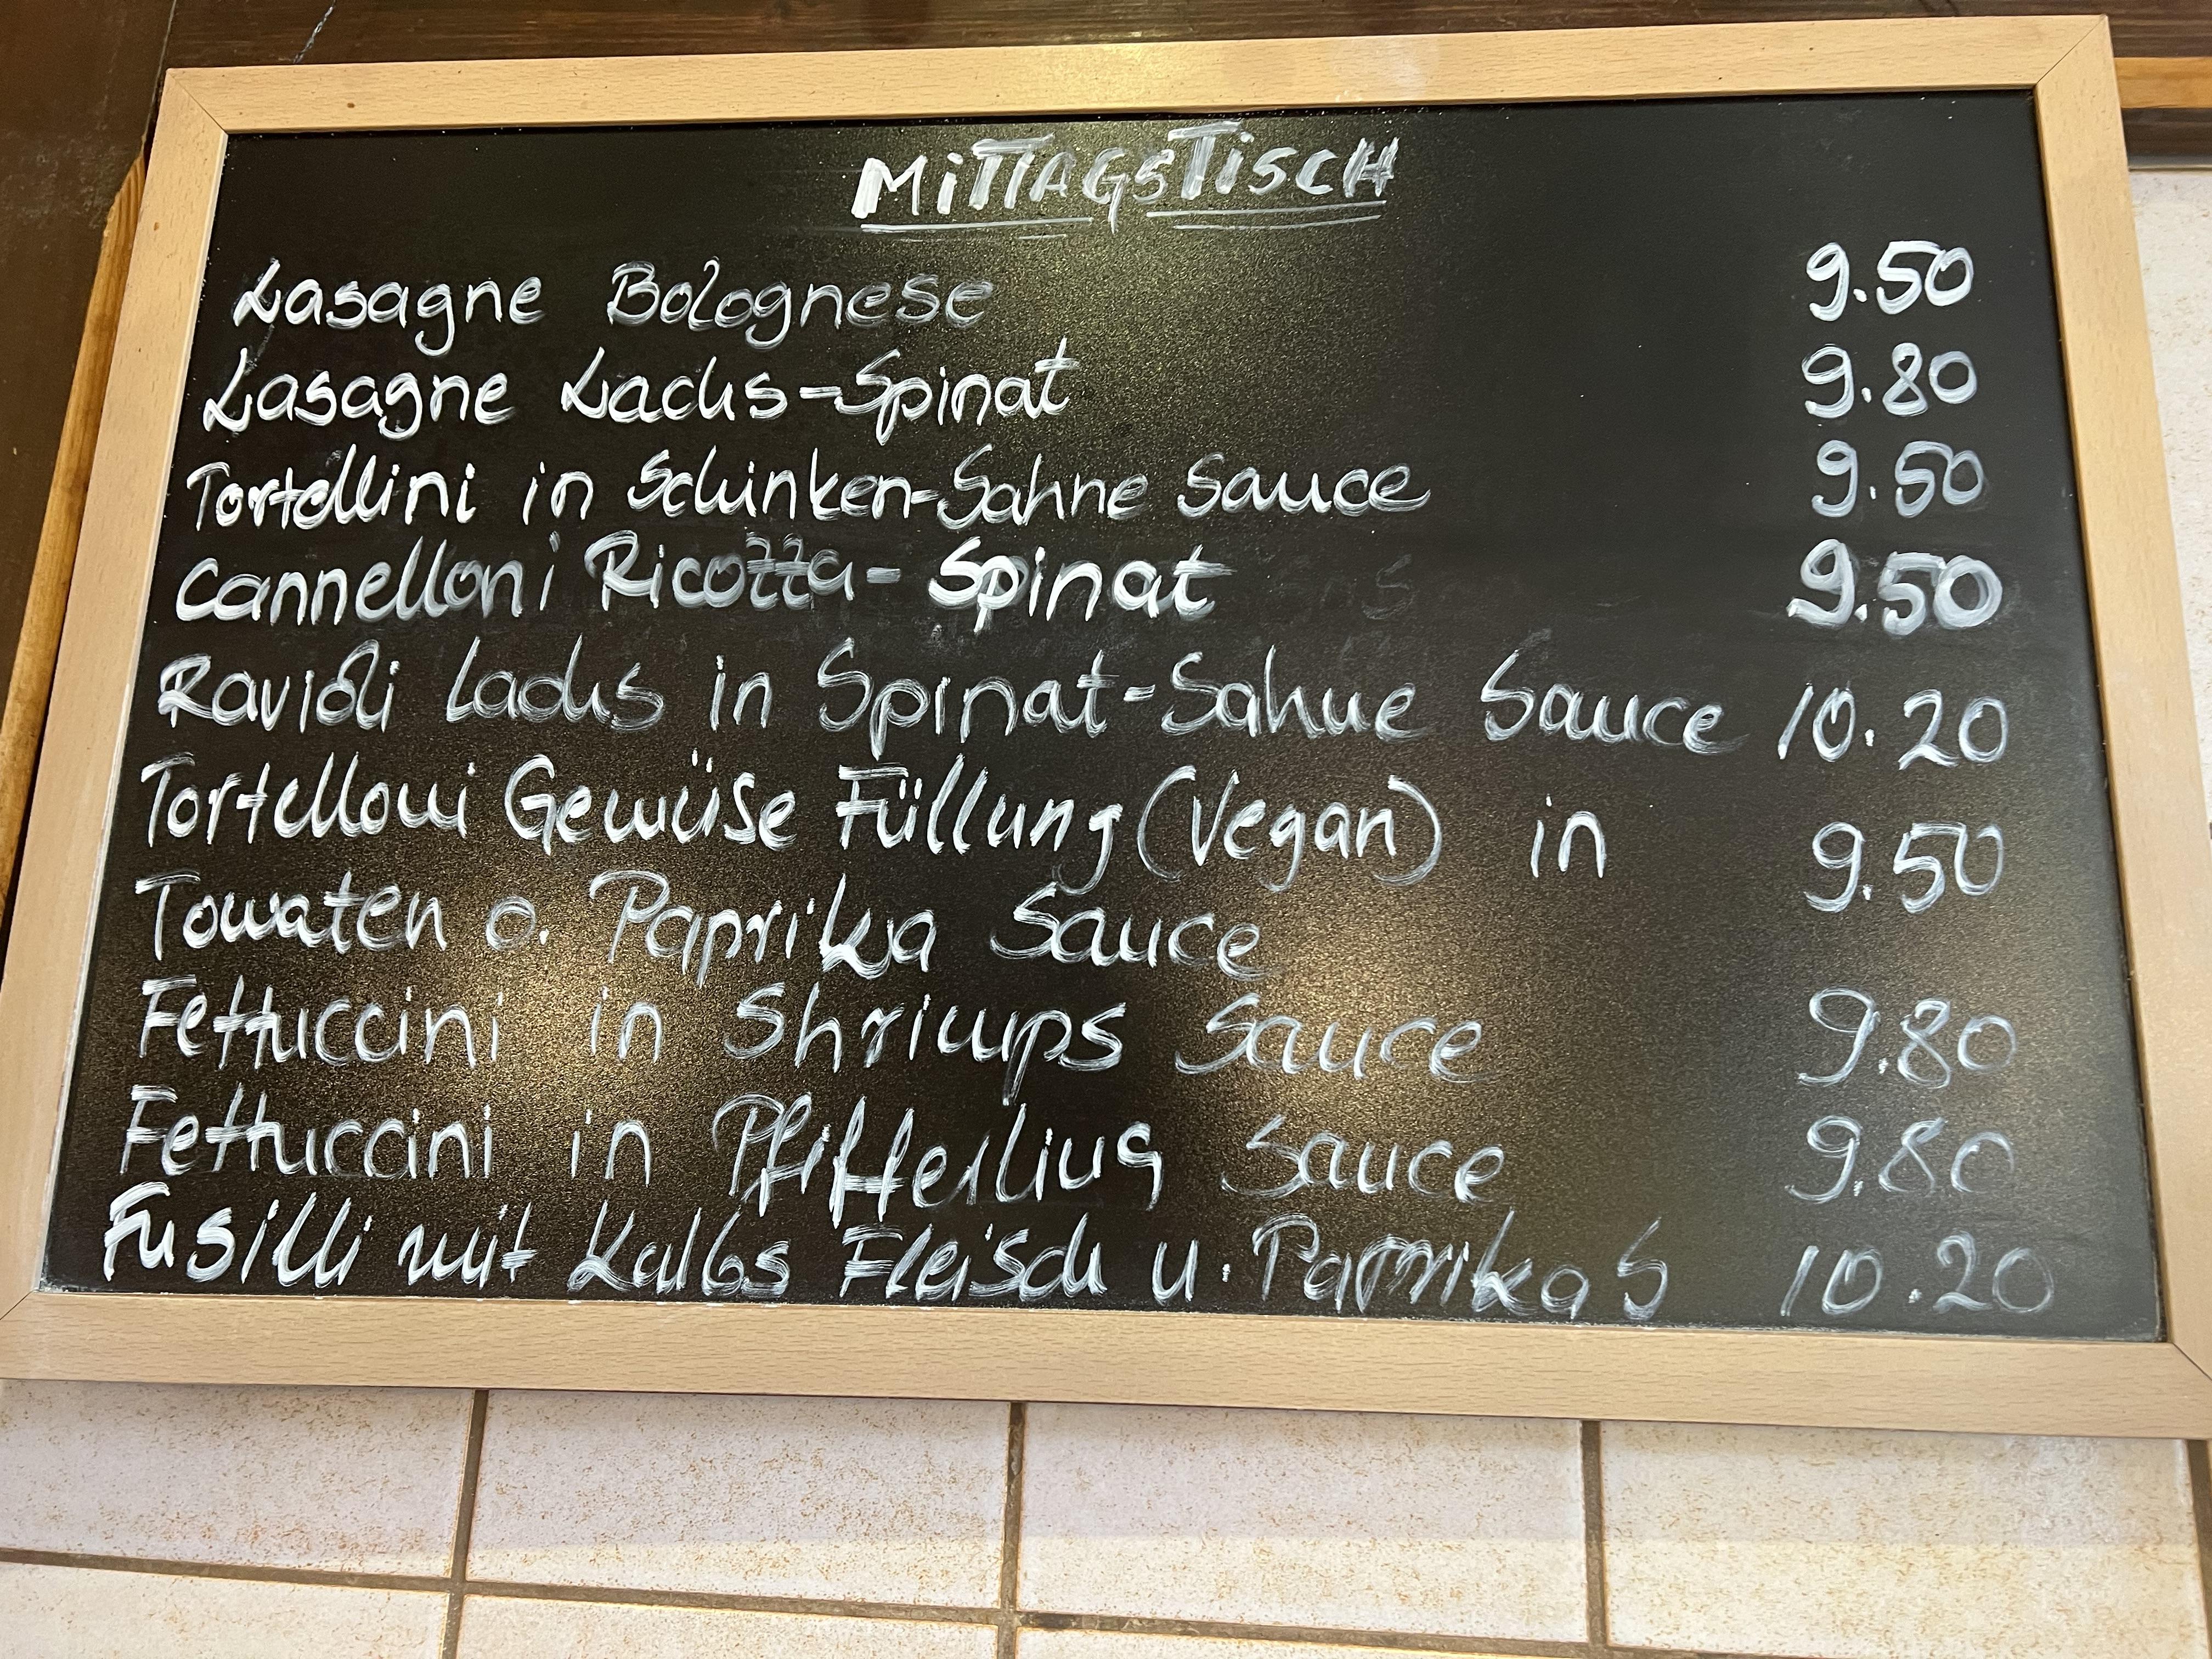 MiTTAGSTiSCH
Lasagne Bolognese 9.50
Lasagne Lachs-Spinat 9.80
Tortellini in Schinken-Sahne Sauce 9.50
Cannelloni Ricotta-Spinat 9.50
Ravioli Lachs in Spinat-Sahne Sauce 10.20
Tortelloni Gemüse Füllung (Vegan) in 9.50
Tomaten o. Paprika Sauce
Fettuccini in Shrimps Sauce 9.80
Fettuccini in Pfifferling Sauce 9.80
Fusilli mit Kalbs Fleisch u. Paprika S 10.20